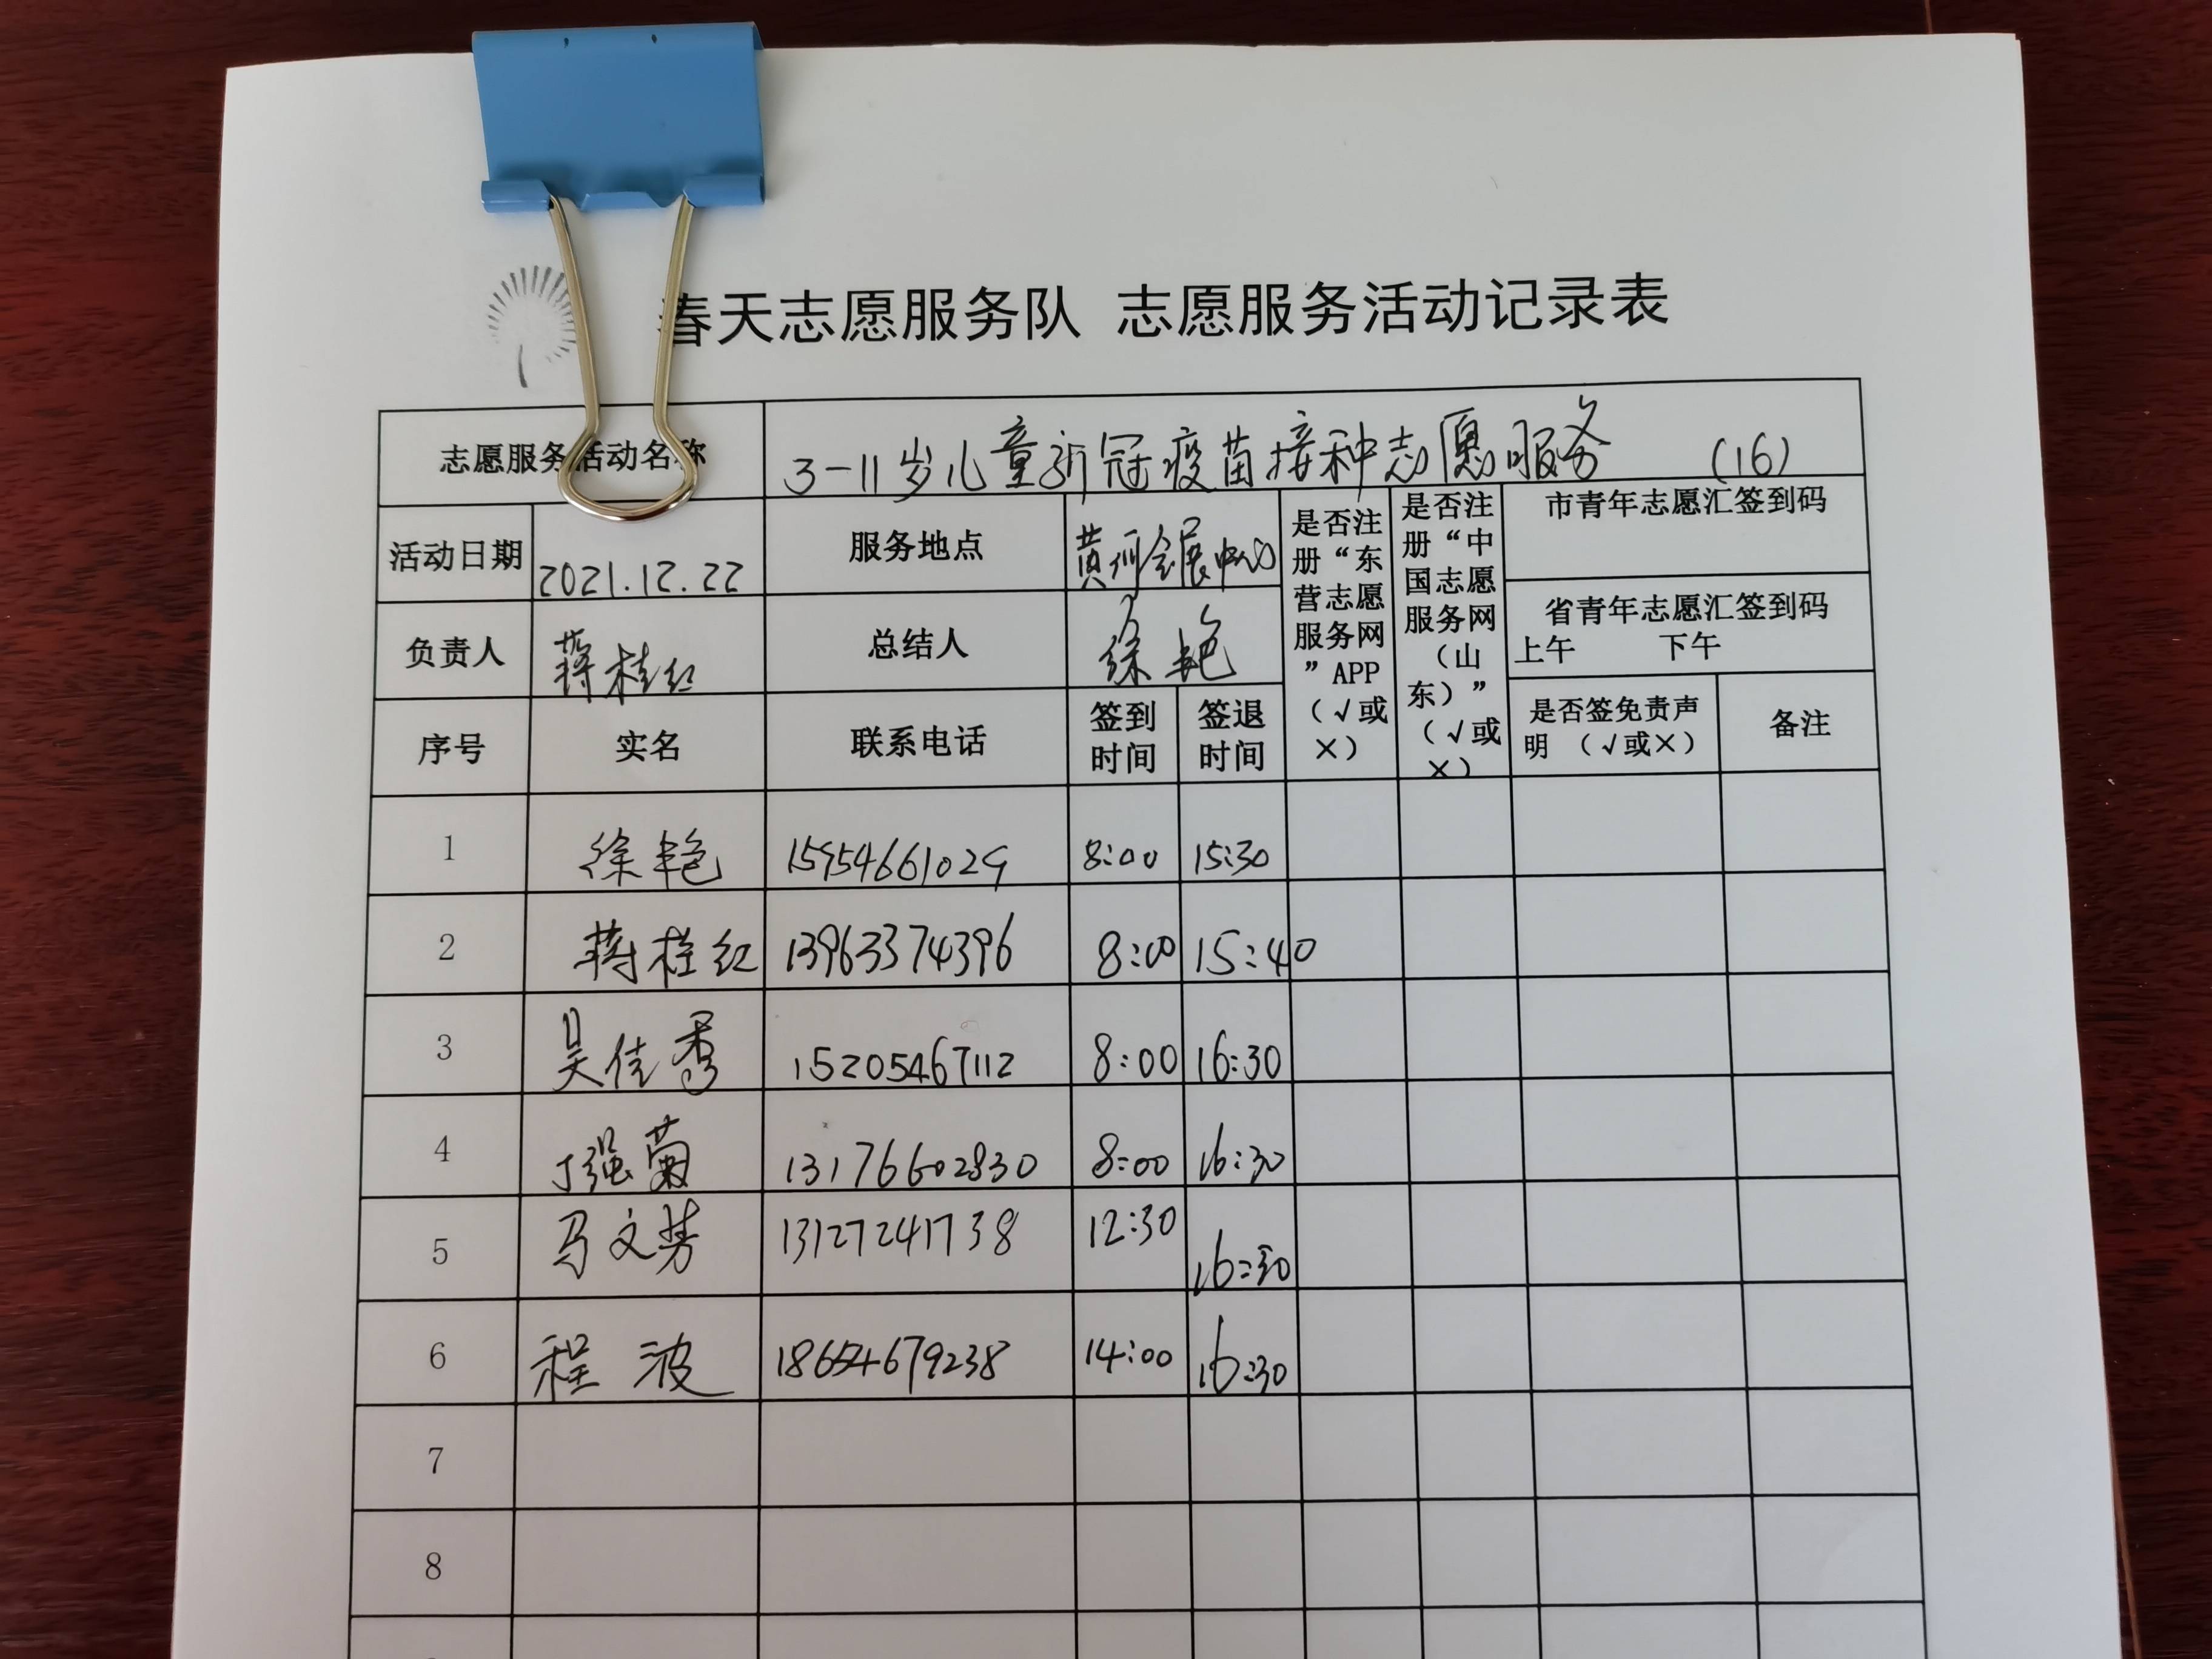 春天志愿服务队 志愿服务活动记录表
志愿服务活动名称 3-11岁儿童新冠疫苗接种志愿服务 (16)
活动日期 2021.12.22 服务地点 黄河会展中心
是否注册“东营志愿服务网”APP（√或×）
是否注册“中国志愿服务网（山东）”（√或×）
市青年志愿汇签到码
省青年志愿汇签到码
上午 下午
负责人 蒋桂红 总结人 徐艳
序号 实名 联系电话 签到时间 签退时间 是否签免责声明（√或×） 备注
1 徐艳 15954661029 8:00 15:30
2 蒋桂红 13963374396 8:00 15:40
3 吴佳秀 15205467112 8:00 16:30
4 丁强菊 13176602830 8:00 16:30
5 马文芳 13127241738 12:30 16:30
6 程波 18654679238 14:00 16:30
7
8